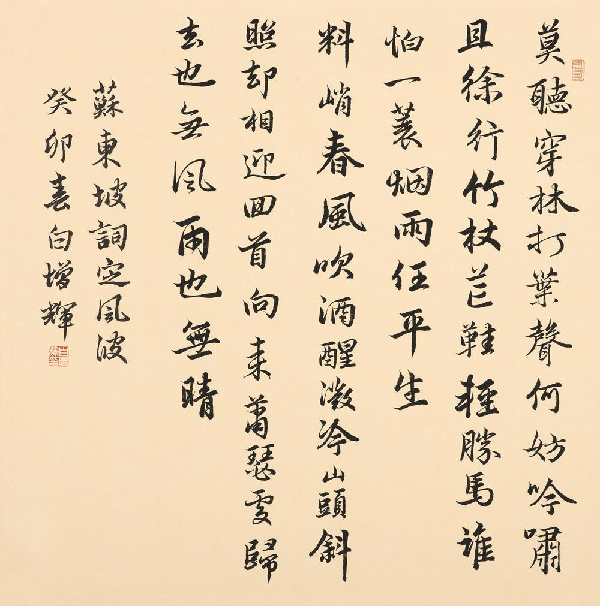 莫聽穿林打葉聲何妨吟嘯
且徐行竹杖芒鞋輕勝馬誰
怕一蓑烟雨任平生
料峭春風吹酒醒激冷山頭斜
照却相迎回首向来蕭瑟處歸
去也無風雨也無晴
蘇東坡詞定風波
癸卯春白增輝